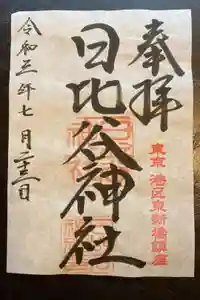 奉拝
東京 港区東新橋鎮座
日比谷神社
令和三年七月二十三日